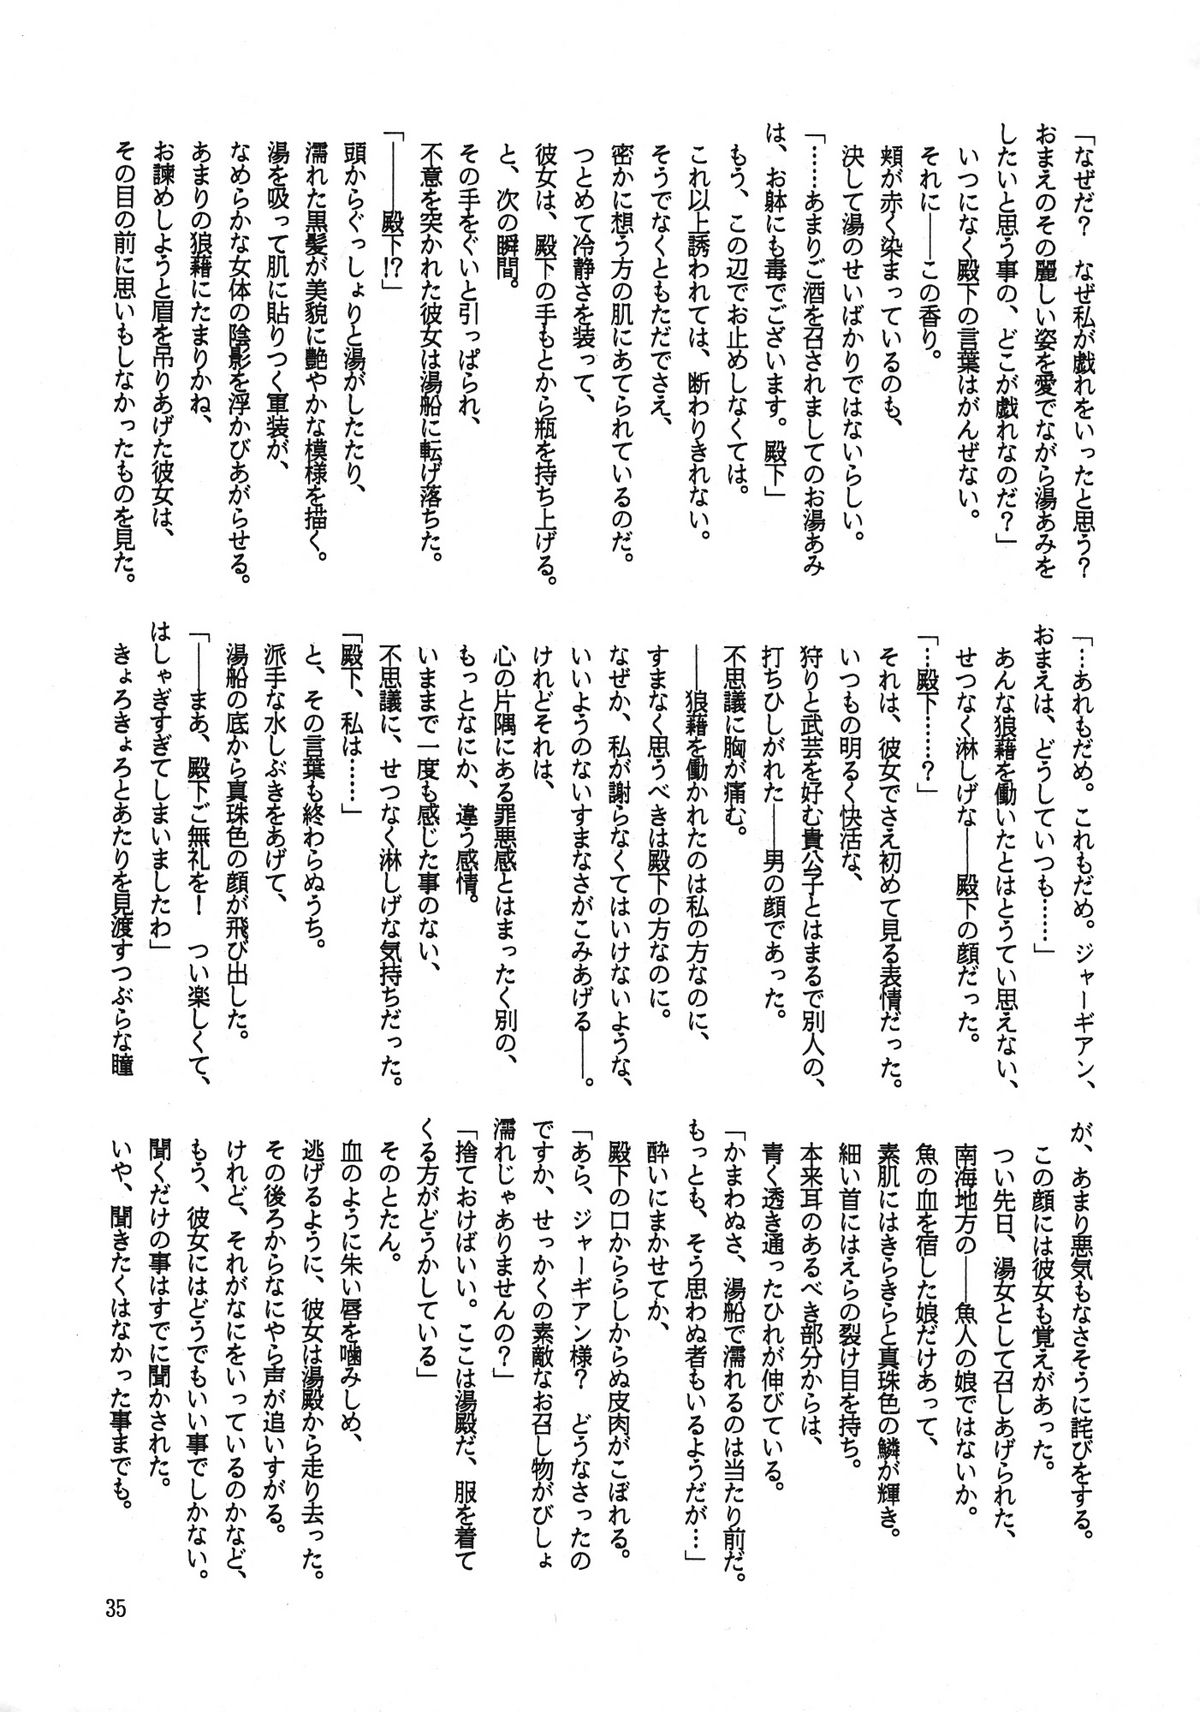 「なぜだ?　なぜ私が戯れをいったと思う?
おまえのその麗しい姿を愛でながら湯あみを
したいと思う事の、どこが戯れなのだ?」
いつになく殿下の言葉はがんぜない。
それに――この香り。
頬が赤く染まっているのも、
決して湯のせいばかりではないらしい。
「……あまりご酒を召されましてのお湯あみ
は、お躰にも毒でございます。殿下」
もう、この辺でお止めしなくては。
これ以上誘われては、断わりきれない。
そうでなくともただでさえ、
密かに想う方の肌にあてられているのだ。
つとめて冷静さを装って、
彼女は、殿下の手もとから瓶を持ち上げる。
と、次の瞬間。
その手をぐいと引っぱられ、
不意を突かれた彼女は湯船に転げ落ちた。
「――殿下!?」
頭からぐっしょりと湯がしたたり、
濡れた黒髪が美貌に艶やかな模様を描く。
湯を吸って肌に貼りつく軍装が、
なめらかな女体の陰影を浮かびあがらせる。
あまりの狼藉にたまりかね、
お諫めしようと眉を吊りあげた彼女は、
その目の前に思いもしなかったものを見た。
「…あれもだめ。これもだめ。ジャーギアン、
おまえは、どうしていつも……」
あんな狼藉を働いたとはとうてい思えない、
せつなく淋しげな――殿下の顔だった。
「…殿下……?」
それは、彼女でさえ初めて見る表情だった。
いつもの明るく快活な、
狩りと武芸を好む貴公子とはまるで別人の、
打ちひしがれた――男の顔であった。
不思議に胸が痛む。
――狼藉を働かれたのは私の方なのに、
すまなく思うべきは殿下の方なのに。
なぜか、私が謝らなくてはいけないような、
いいようのないすまなさがこみあげる――。
けれどそれは、
心の片隅にある罪悪感とはまったく別の、
もっとなにか、違う感情。
いままで一度も感じた事のない、
不思議に、せつなく淋しげな気持ちだった。
「殿下、私は……」
と、その言葉も終わらぬうち。
派手な水しぶきをあげて、
湯船の底から真珠色の顔が飛び出した。
「――まあ、殿下ご無礼を!　つい楽しくて、
はしゃぎすぎてしまいましたわ」
きょろきょろとあたりを見渡すつぶらな瞳
が、あまり悪気もなさそうに詫びをする。
この顔には彼女も覚えがあった。
つい先日、湯女として召しあげられた、
南海地方の――魚人の娘ではないか。
魚の血を宿した娘だけあって、
素肌にはきらきらと真珠色の鱗が輝き。
細い首にはえらの裂け目を持ち。
本来耳のあるべき部分からは、
青く透き通ったひれが伸びている。
「かまわぬさ、湯船で濡れるのは当たり前だ。
もっとも、そう思わぬ者もいるようだが…」
酔いにまかせてか、
殿下の口かららしからぬ皮肉がこぼれる。
「あら、ジャーギアン様?　どうなさったの
ですか、せっかくの素敵なお召し物がびしょ
濡れじゃありませんの?」
「捨ておけばいい。ここは湯殿だ、服を着て
くる方がどうかしている」
そのとたん。
血のように朱い唇を噛みしめ、
逃げるように、彼女は湯殿から走り去った。
その後ろからなにやら声が追いすがる。
けれど、それがなにをいっているのかなど、
もう、彼女にはどうでもいい事でしかない。
聞くだけの事はすでに聞かされた。
いや、聞きたくはなかった事までも。
35